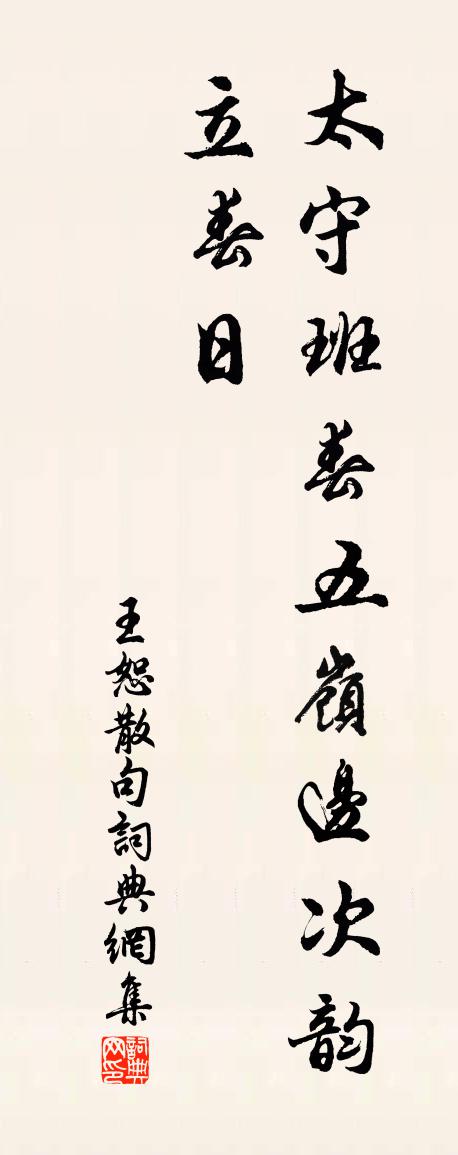 太守班春五嶺邊次韵
立春日
王恕散句詞典網集
詞典网印